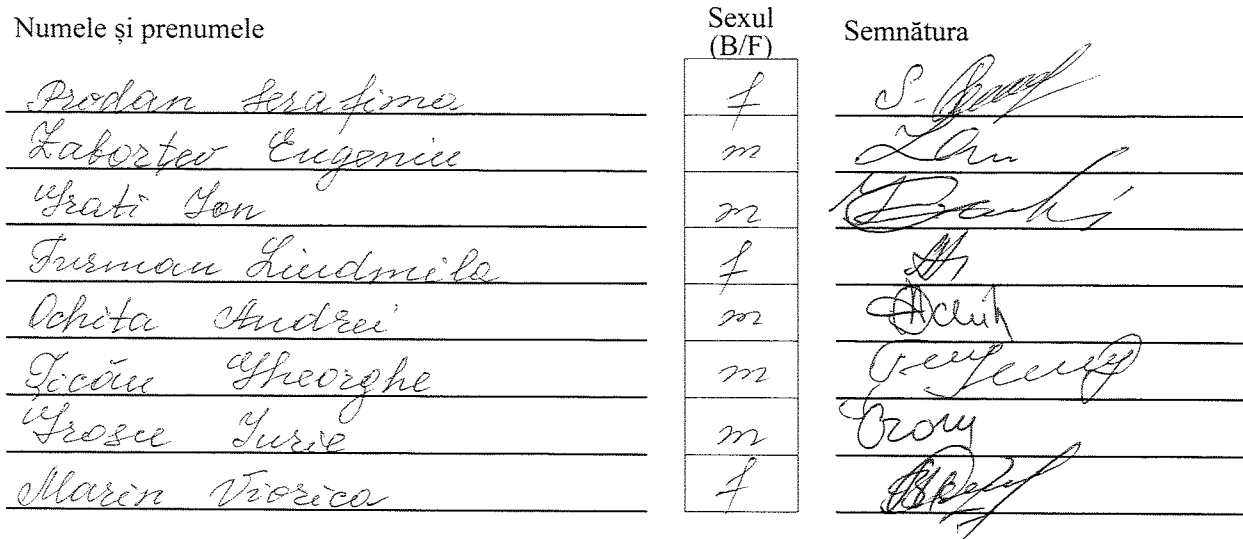 Numele și prenumele Sexul (B/F) Semnătura
Prodan Serafima f
Zaborțev Eugeniu m
Grati Ion m
Furman Liudmila f
Ochita Andrei m
Țicău Gheorghe m
Grosu Iurie m
Marin Viorica f